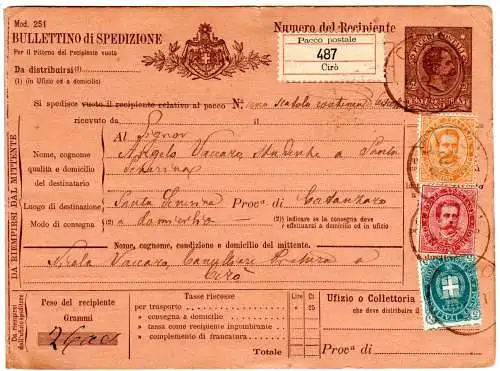 Mod. 251
BULLETTINO di SPEDIZIONE
Per il ritorno del recipiente vuoto
Da distribuirsi (1)
(1) in Ufizio od a domicilio)
Numero del Recipiente
Pacco postale
487
Cirò
Si spedisce vuoto il recipiente relativo al pacco N.° una scatola
ricevuto da il
DA RIEMPIRSI DAL MITTENTE
Al Signor
Nome, cognome
qualità e domicilio
del destinatario
Angelo Vaccaro, a
Luogo di destinazione
Santa Severina Prov.a di Catanzaro
Modo di consegna
(2) a domicilio (2) indicare se la consegna deve
effettuarsi a domicilio od in ufizio
Nome, cognome, condizione e domicilio del mittente.
Nicola Vaccaro, Cancelliere Pretura a
Cirò
Da riempirsi
dall'ufizio speditore
Peso del recipiente
Grammi
Tasse riscosse
Lire
Ct
per trasporto
25
» consegna a domicilio
» tassa come recipiente ingombrante
» complemento di francatura
Totale
Ufizio o Collettoria
che deve distribuire il
Prov.a di